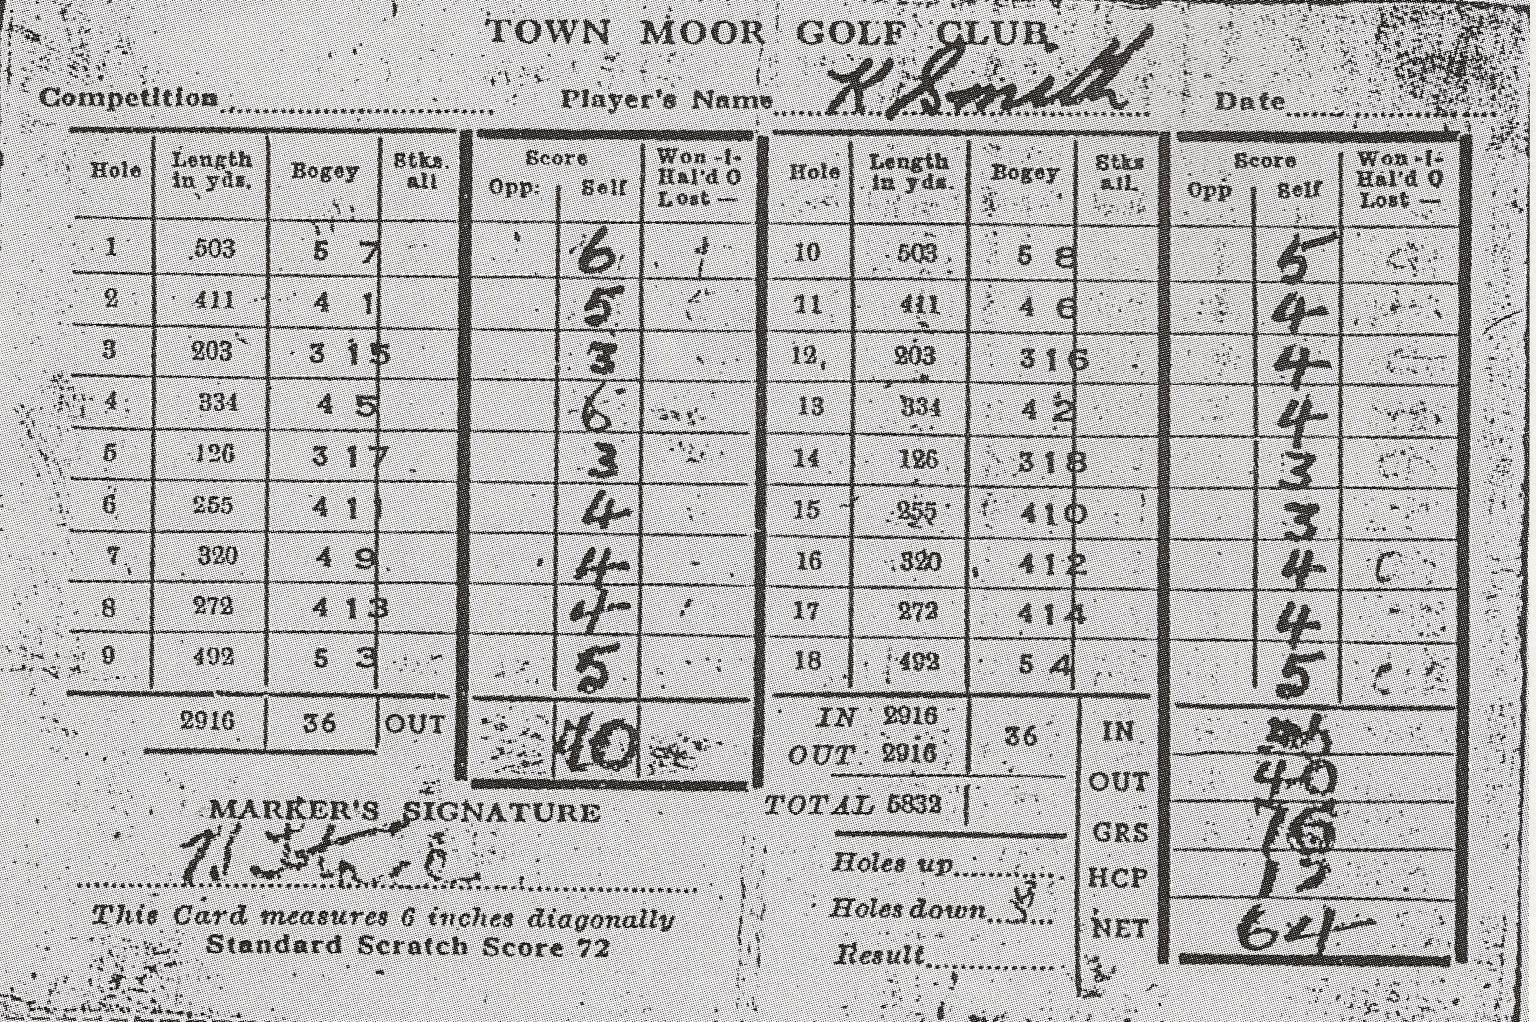 TOWN MOOR GOLF CLUB
Competition Player's Name K Smith Date
Hole Length in yds. Bogey Stks. all Score Opp: Self Won -|- Hal'd O Lost — Hole Length in yds. Bogey Stks all. Score Opp Self Won -|- Hal'd O Lost —
1 503 5 7 6 10 503 5 8 5
2 411 4 1 5 11 411 4 6 4
3 203 3 15 3 12 203 3 16 4
4 334 4 5 6 13 334 4 2 4
5 126 3 17 3 14 126 3 18 3
6 255 4 11 4 15 255 4 10 3
7 320 4 9 4 16 320 4 12 4
8 272 4 13 4 17 272 4 14 4
9 492 5 3 5 18 492 5 4 5
2916 36 OUT 40 IN 2916 36 IN
OUT 2916 OUT 40
MARKER'S SIGNATURE TOTAL 5832 GRS 76
Holes up HCP 12
This Card measures 6 inches diagonally Holes down NET 64
Standard Scratch Score 72 Result